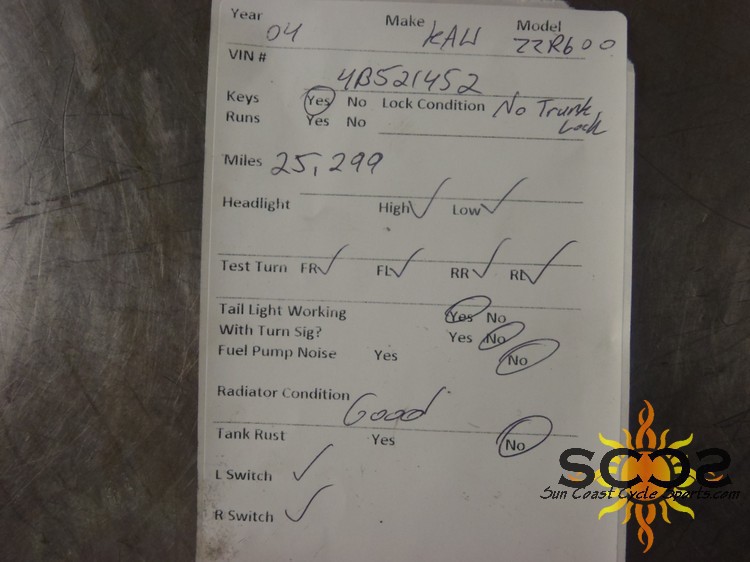 Year 04 Make KAW Model ZZR600
VIN # 4B521452
Keys Yes No Lock Condition No Trunk Lock
Runs Yes No
Miles 25,299
Headlight High✓ Low✓
Test Turn FR✓ FL✓ RR✓ RL✓
Tail Light Working Yes No
With Turn Sig? Yes No
Fuel Pump Noise Yes No
Radiator Condition Good
Tank Rust Yes No
L Switch ✓
R Switch ✓
SCCS
Sun Coast Cycle Sports.com